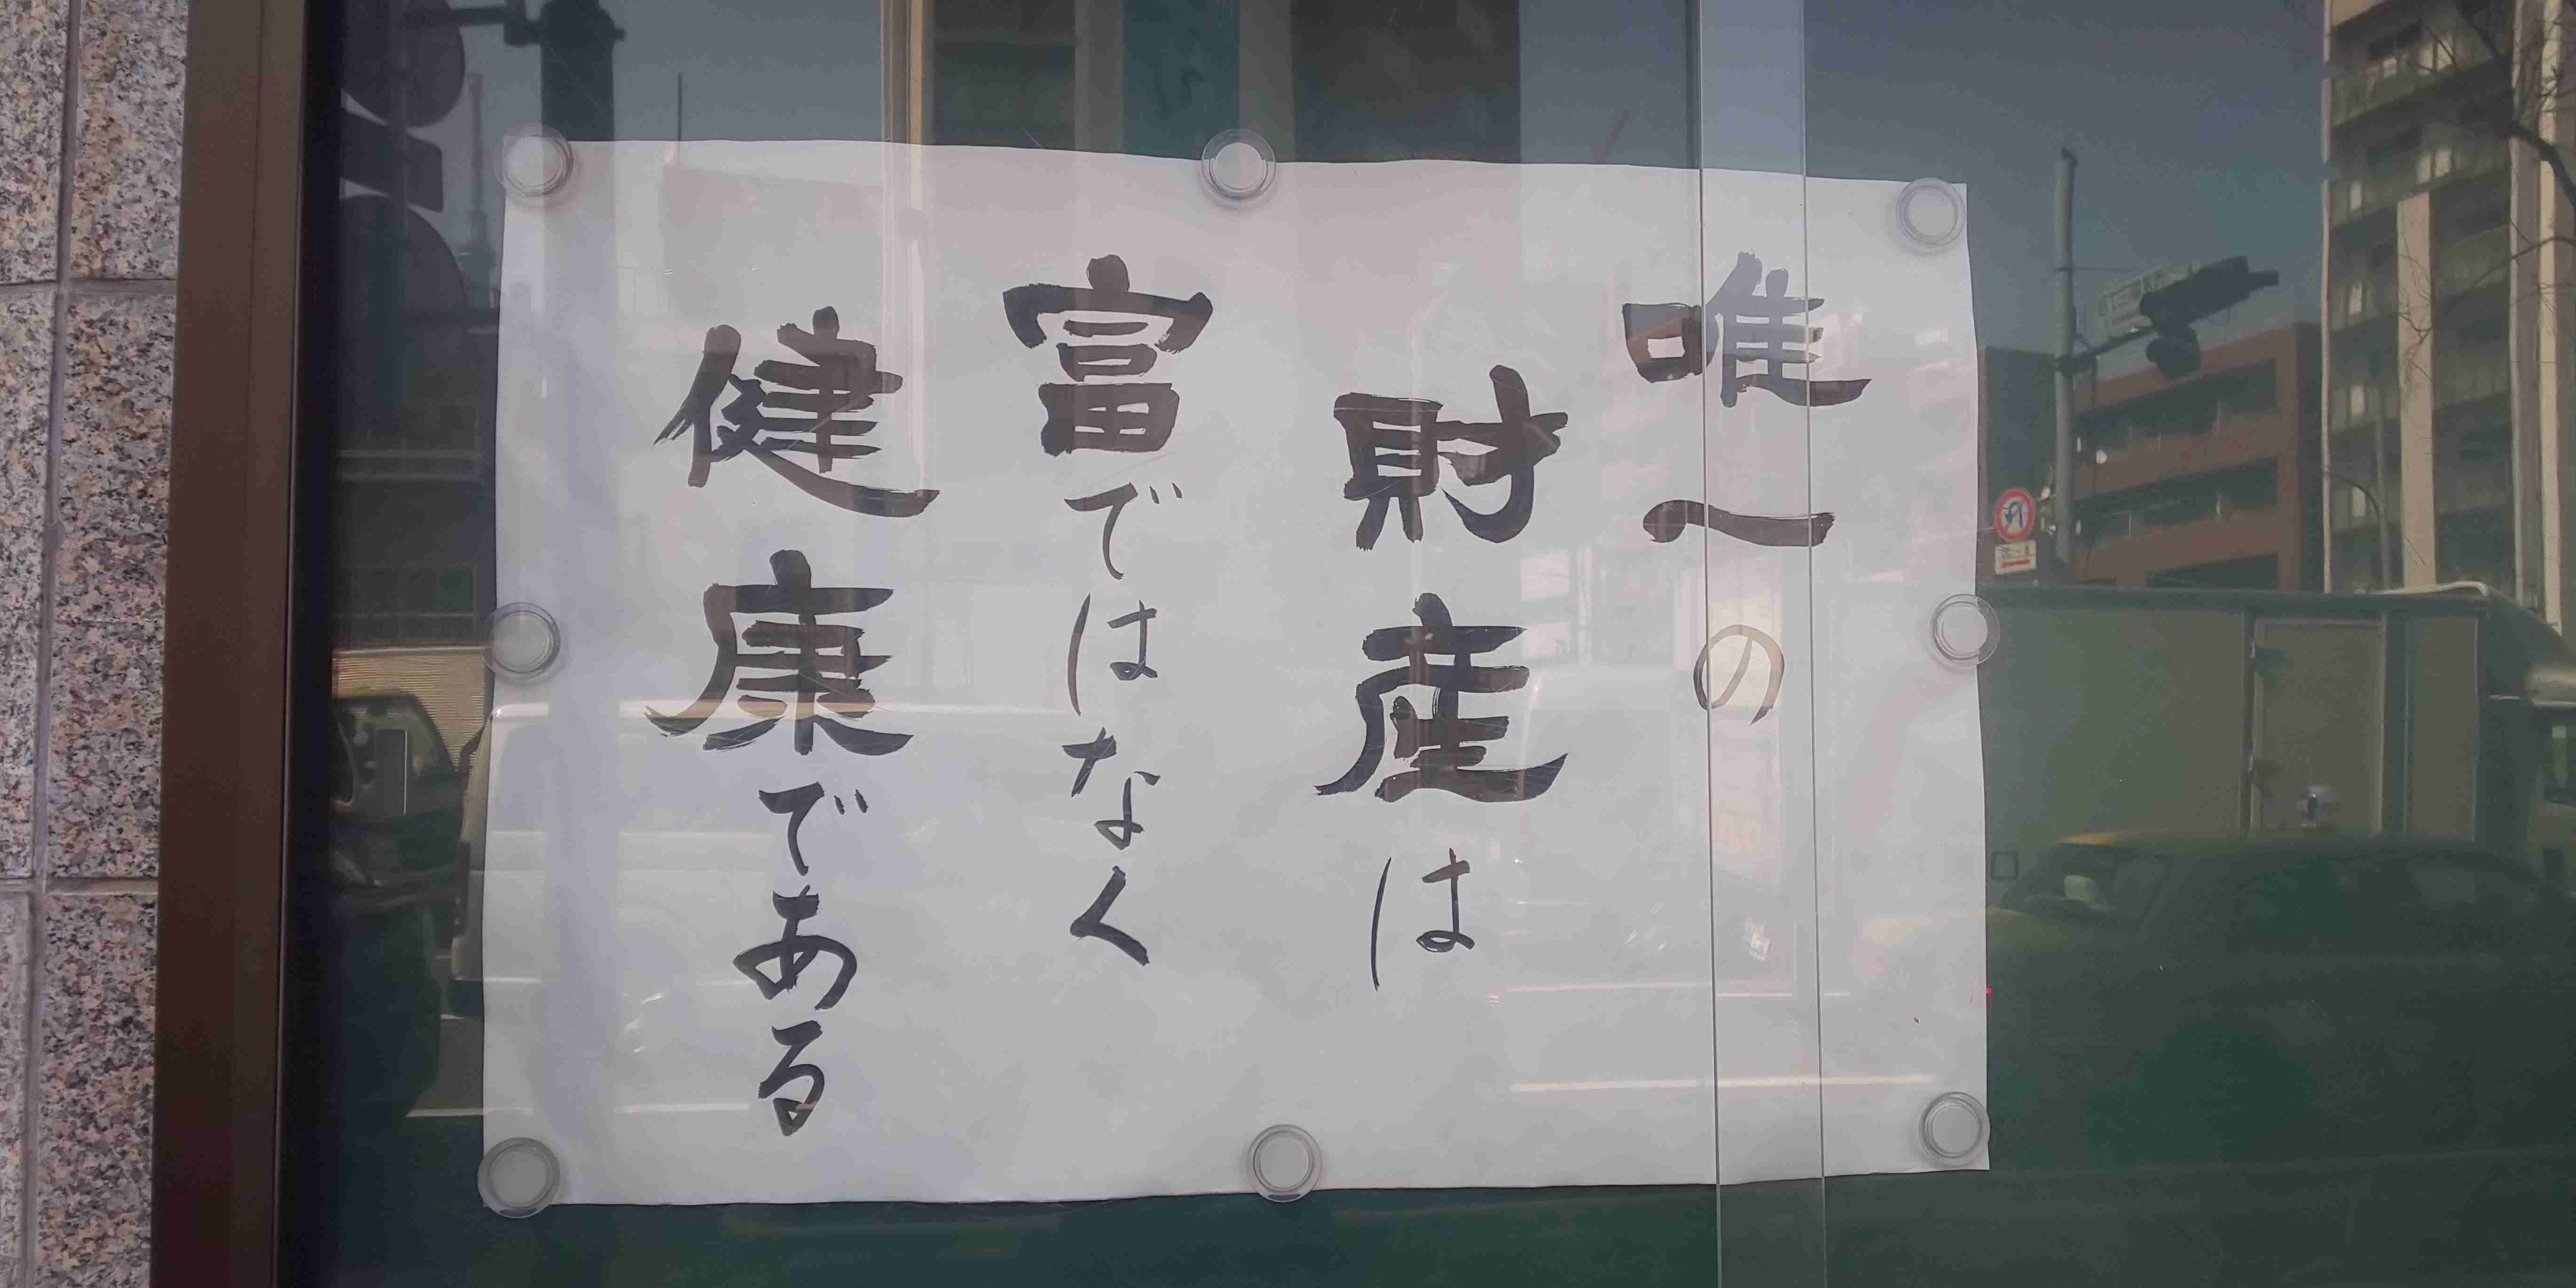 唯一の
財産は
富ではなく
健康である